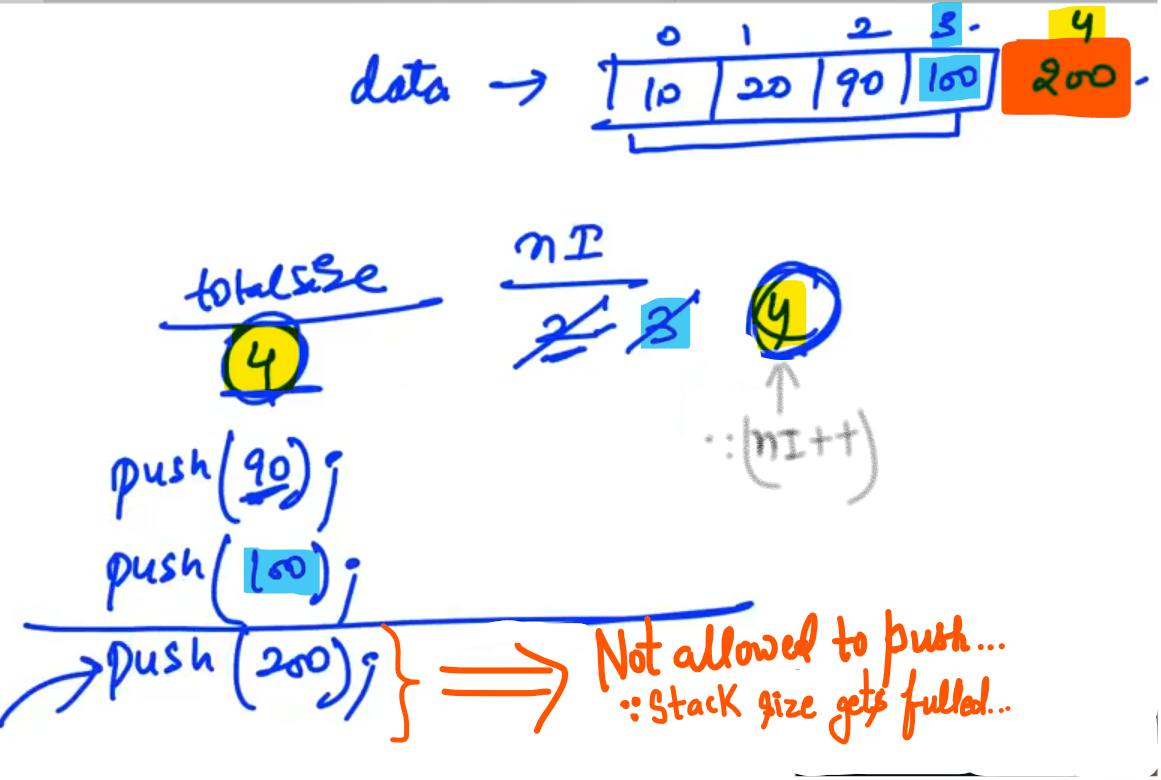 0 1 2 3. 4
data → 10 20 90 100 200.
totalsize nI
4 2 3 4
∵ (nI++)
push(90);
push(100);
push(200); } ⇒ Not allowed to push...
∵ Stack size gets fulled...